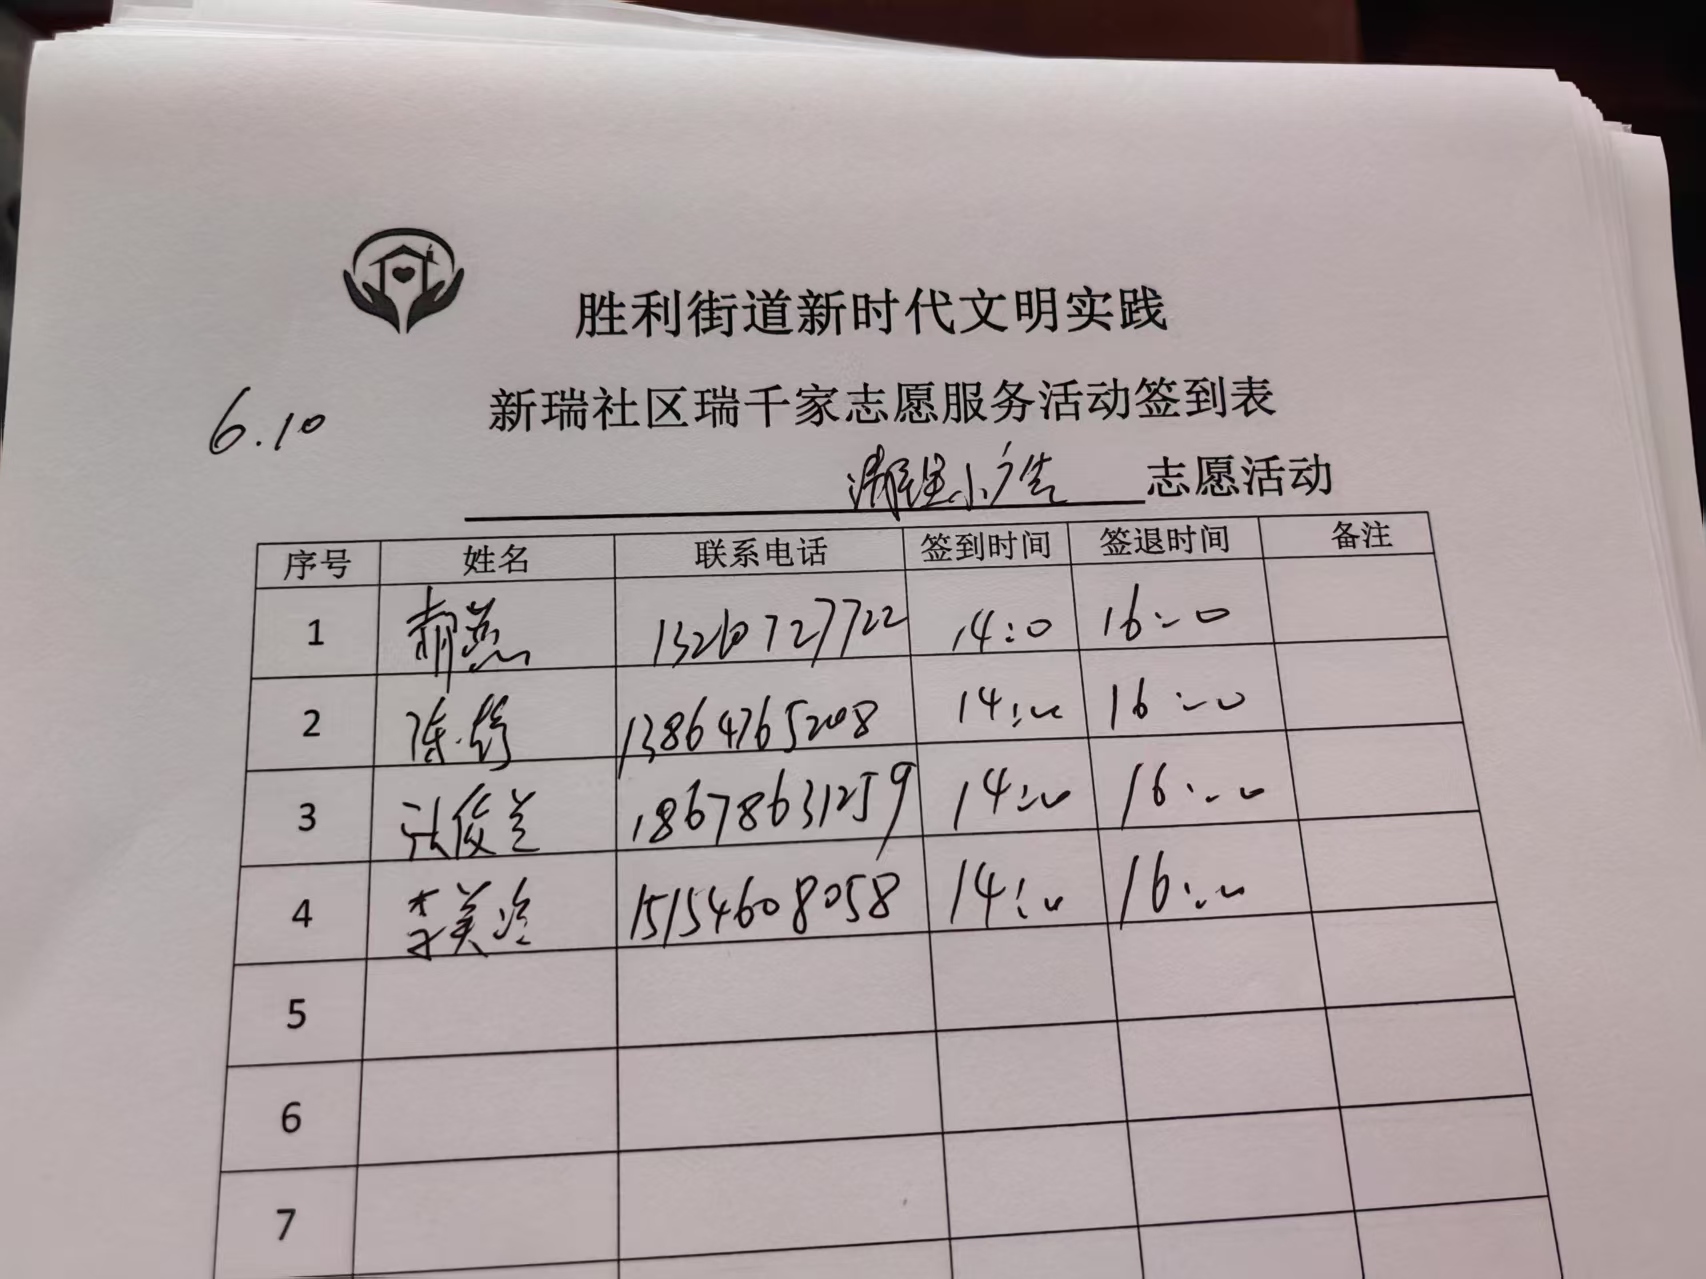 胜利街道新时代文明实践
6.10
新瑞社区瑞千家志愿服务活动签到表
清理小广告 志愿活动
序号 姓名 联系电话 签到时间 签退时间 备注
1 14:0 16:00
2 13864765208 14:00 16:00
3 张俊兰 18678631259 14:00 16:00
4 李美玲 15154608058 14:00 16:00
5
6
7